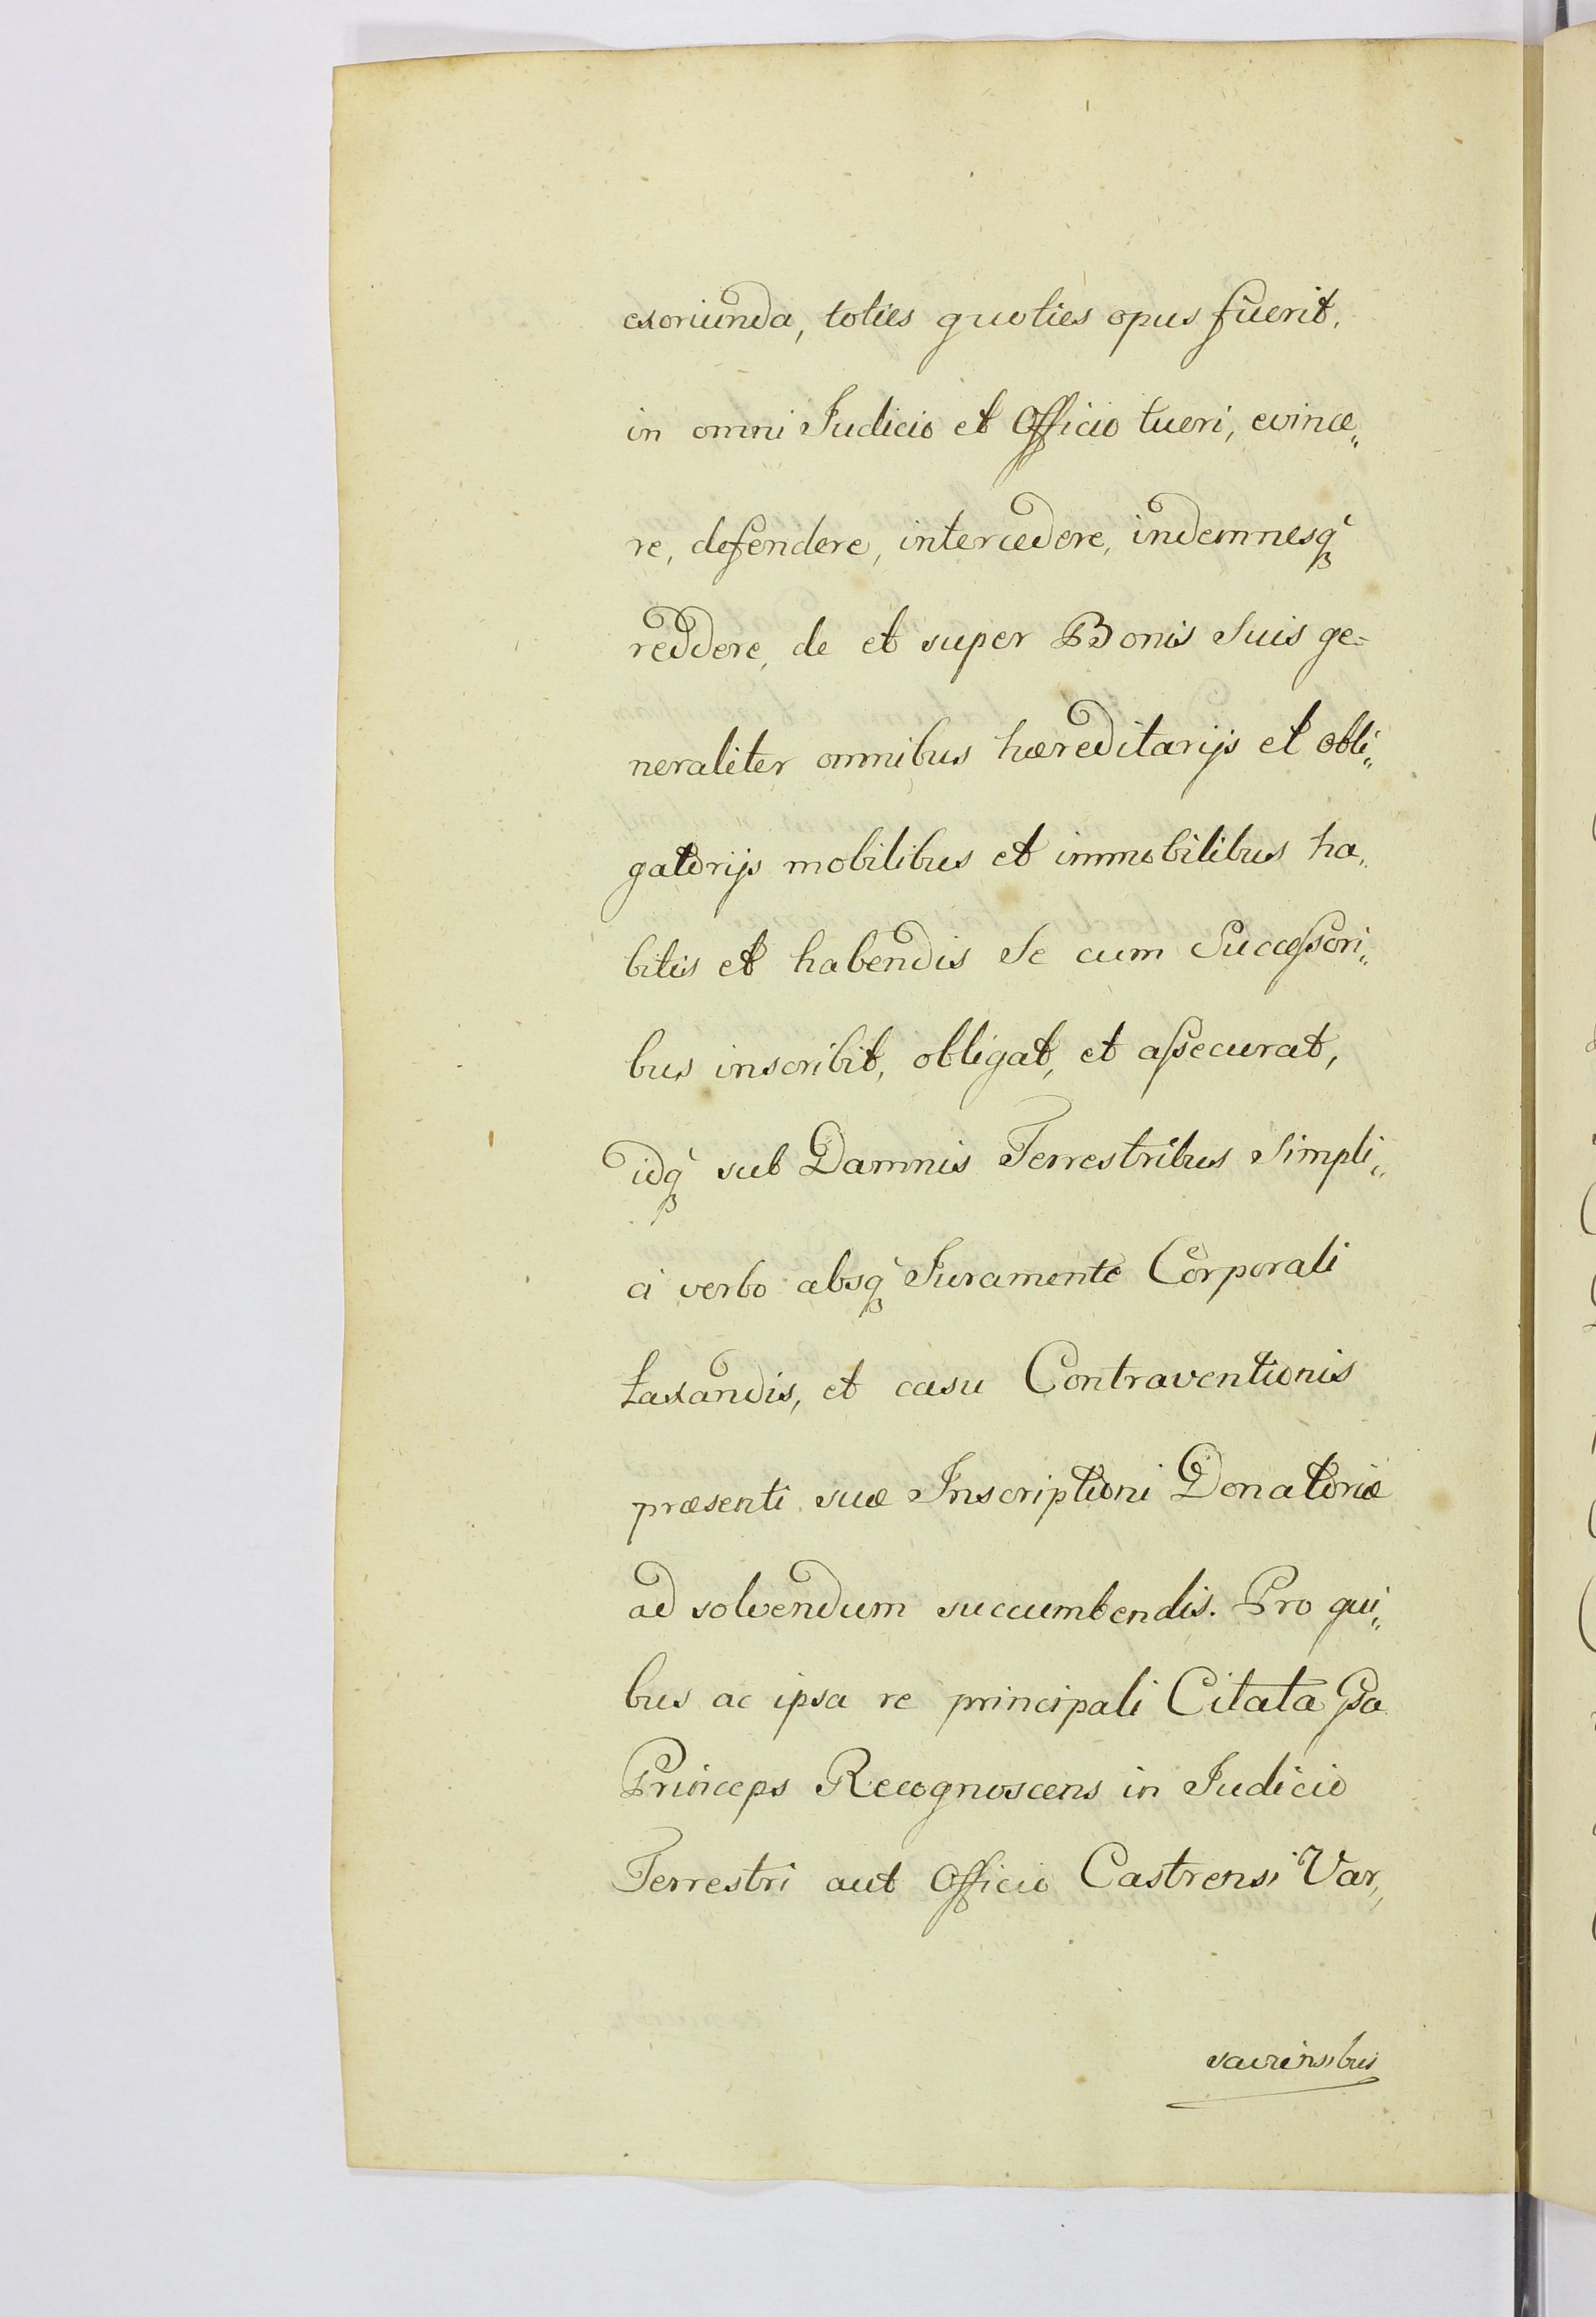 exoriunda, toties quoties opus fuerit,
in omni Judicio et Officio tueri, evince„
re, defendere, intercedere, indemnesq̃
reddere, de et super Bonis Suis ge=
neraliter omnibus hæreditarijs et obli„
gatorijs mobilibus et immobilibus ha„
bitis et habendis Se cum Successori„
bus inscribit, obligat, et assecurat,
idq̃ sub Damnis Terrestribus Simpli„
ci verbo absq̃ Juramento Corporali
taxandis, et casu Contraventionis
præsenti suæ Inscriptioni Donatoriæ
ad solvendum succumbendis. Pro qui„
bus ac ipsa re principali Citata Gsa
Princeps Recognoscens in Judicio
Terrestri aut Officio Castrensi Var„
saviensibus